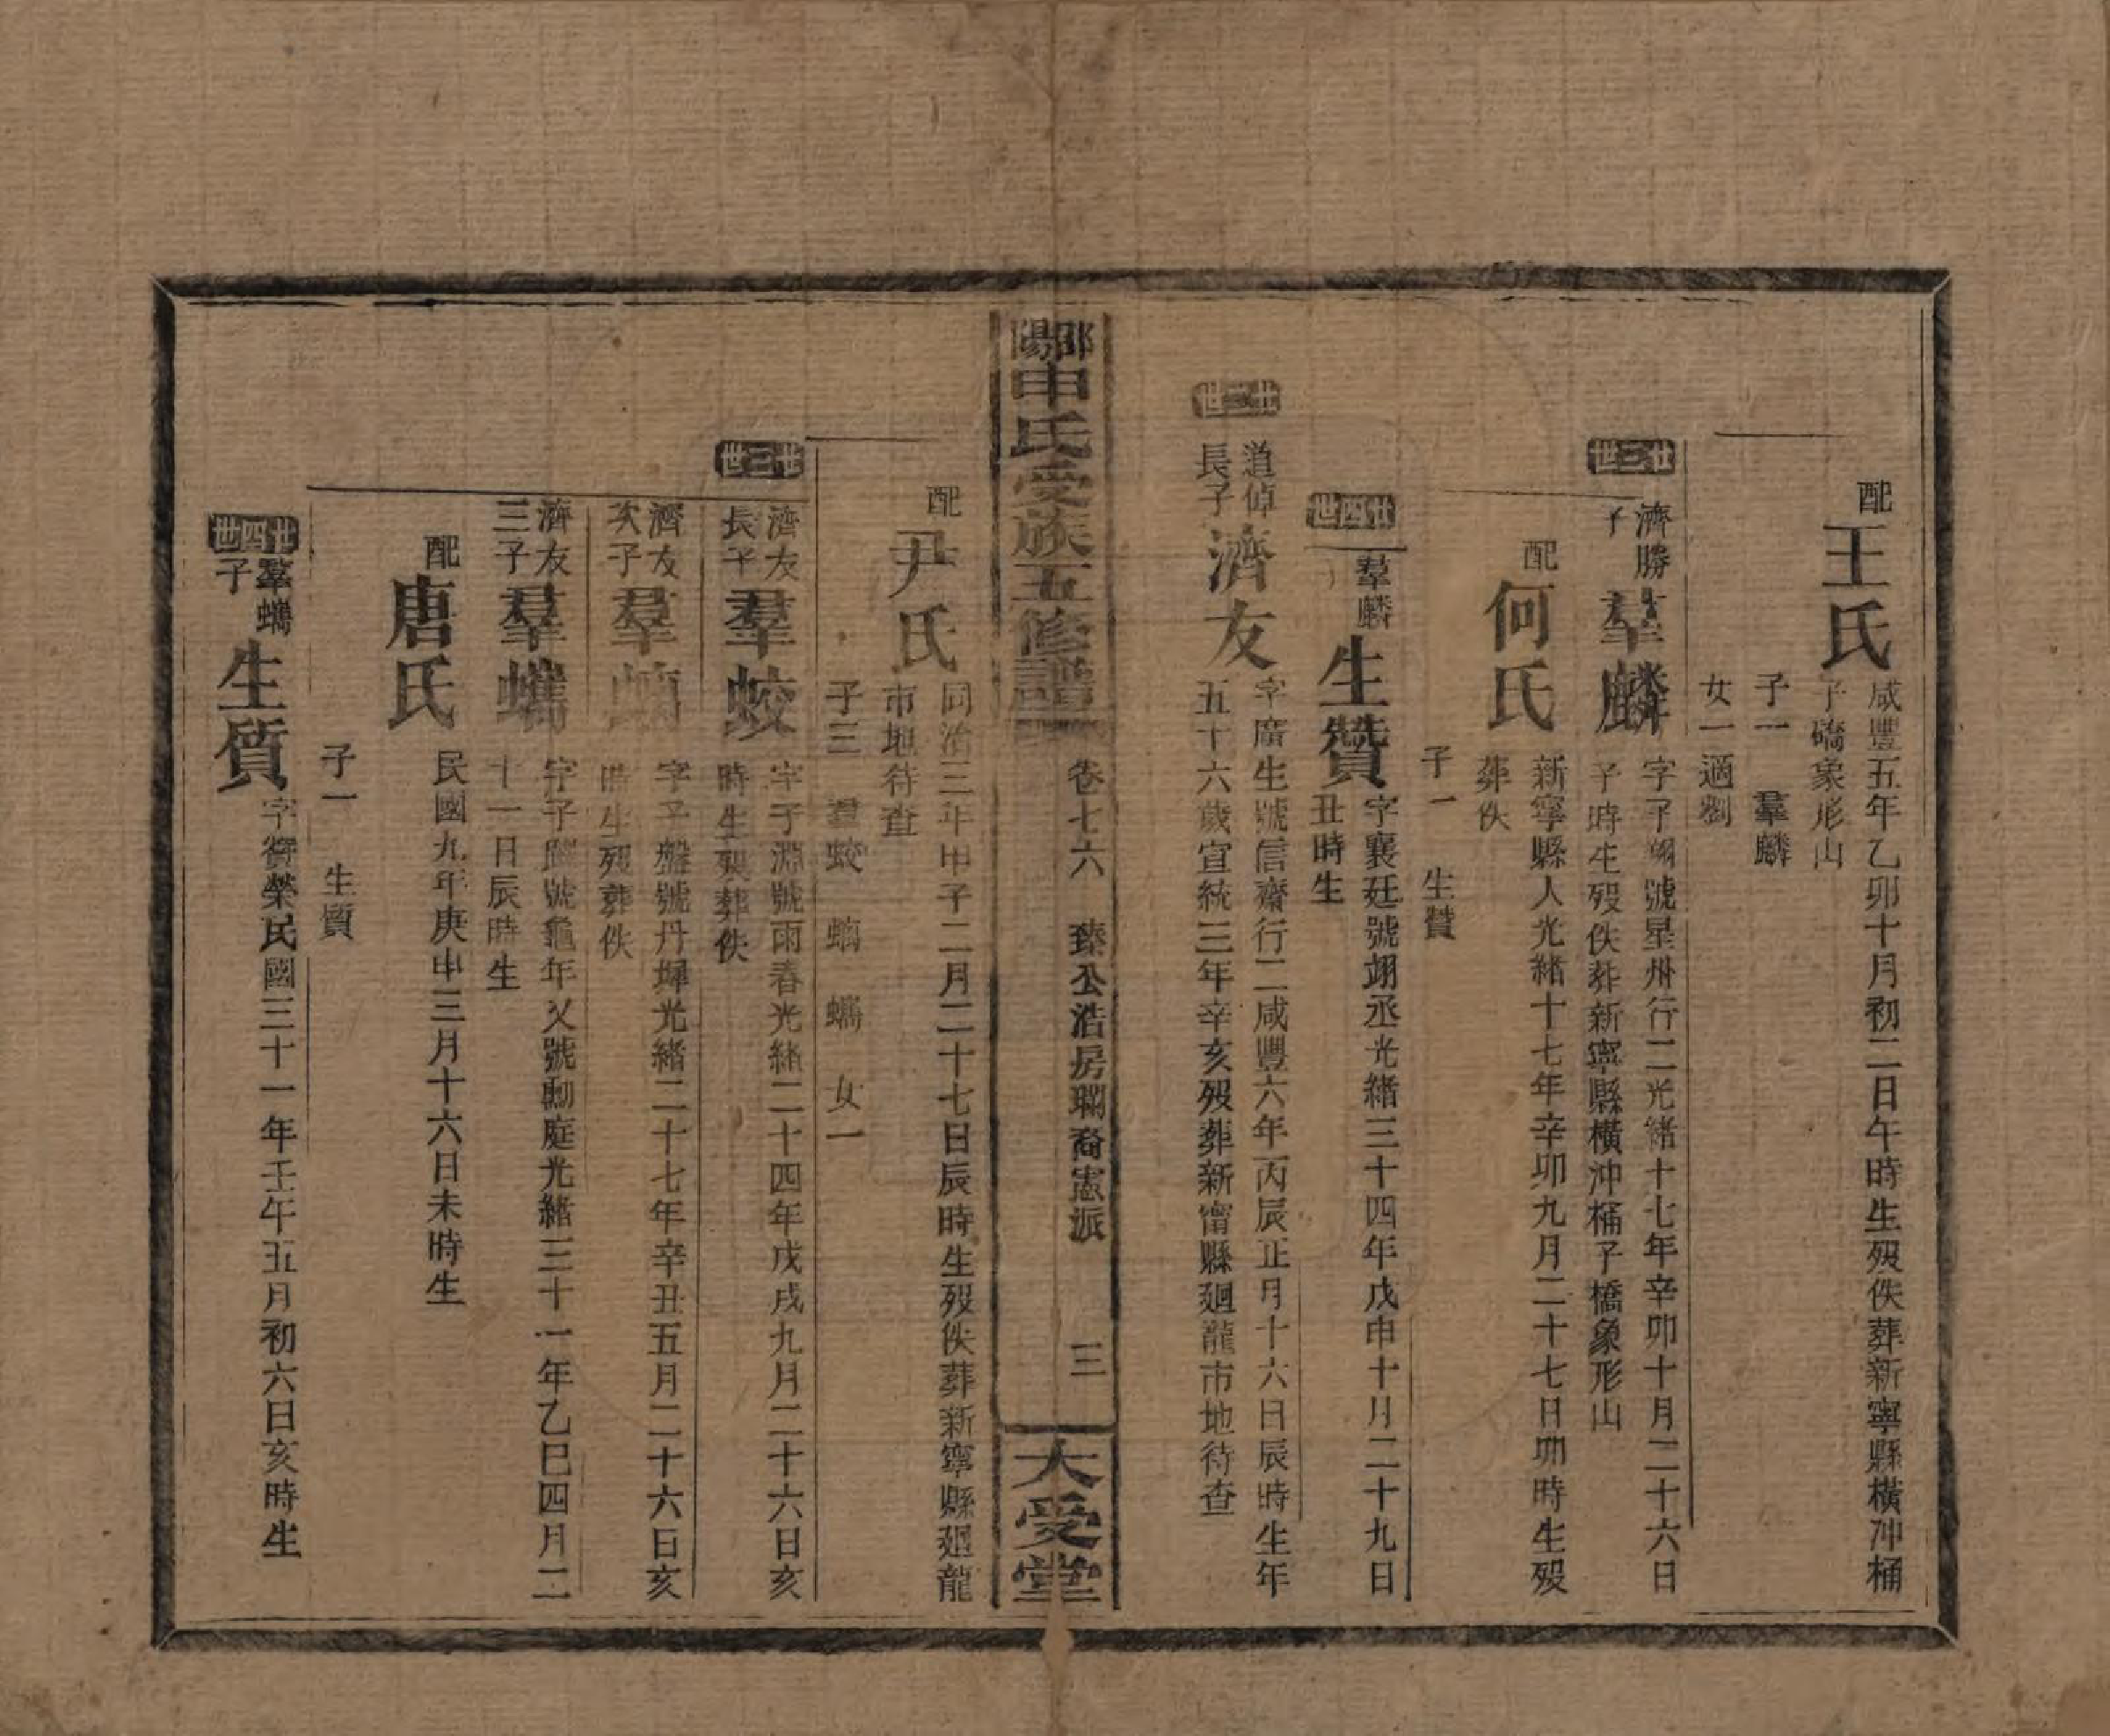 配王氏
咸豐五年乙卯十月初二日午時生歿佚葬新寧縣橫沖桶
子礄象形山
子一　羣麟
女一適劉
廿三世
濟勝
子
羣麟
字子翊號星州行二光緒十七年辛卯十月二十六日
子時生歿佚葬新寧縣橫沖桶子橋象形山
配何氏
新寧縣人光緒十七年辛卯九月二十七日卯時生歿
葬佚
子一　生贊
廿四世
羣麟
生贊
字襄廷號翊丞光緒三十四年戊申十月二十九日
丑時生
廿二世
道倬
長子
濟友
字廣生號信齋行二咸豐六年丙辰正月十六日辰時生年
五十六歲宣統三年辛亥歿葬新甯縣廻龍市地待查
邵陽申氏受族五修譜
卷七六　臻公浩房瓓裔憲派　三
大受堂
配尹氏
同治三年甲子二月二十七日辰時生歿佚葬新寧縣廻龍
市地待查
子三　羣蛟　蠣　女一
廿三世
濟友
長子
羣蛟
字子淵號雨春光緒二十四年戊戌九月二十六日亥
時生歿葬佚
濟友
次子
羣
字子盤號丹墀光緒二十七年辛丑五月二十六日亥
時生歿葬佚
濟友
三子
羣
字子號龜年又號勵庭光緒三十一年乙巳四月二
十一日辰時生
配唐氏
民國九年庚申三月十六日未時生
子一　生質
廿四世
羣
子
生質
字賓榮民國三十一年壬午五月初六日亥時生